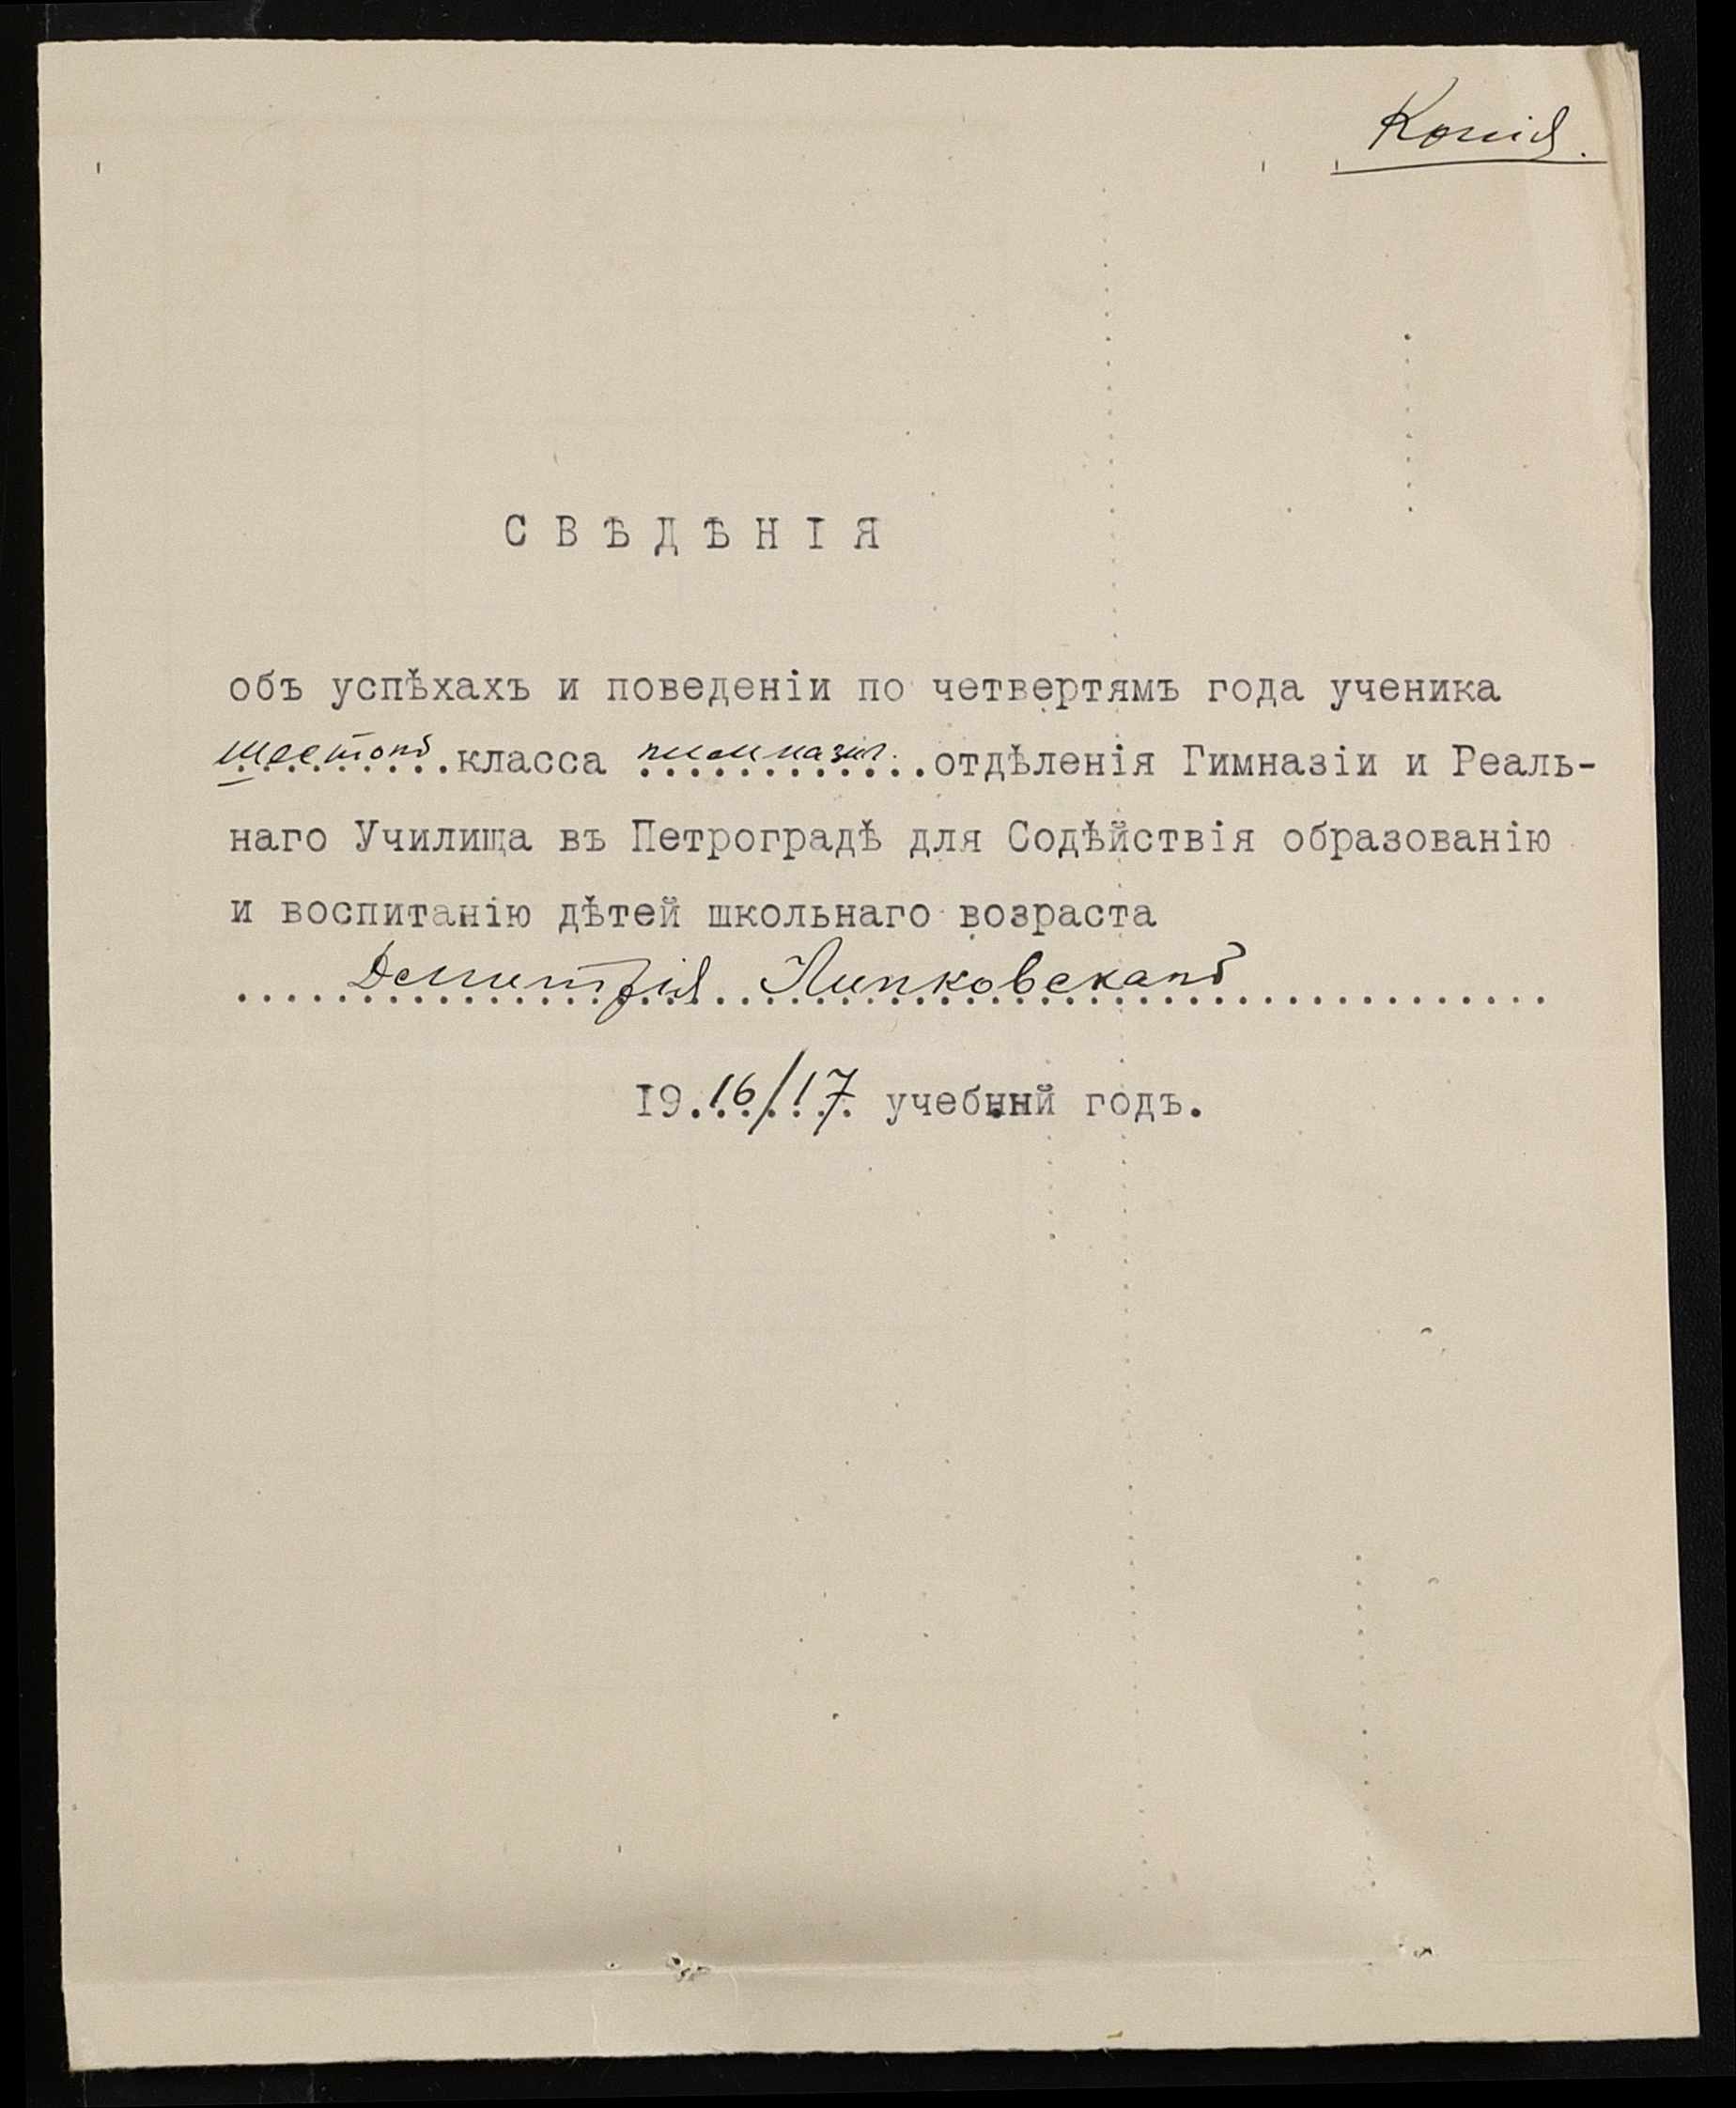 Копія.
СВѢДѢНІЯ
объ успѣхахъ и поведеніи по четвертямъ года ученика
шестого класса гимназич. отдѣленія Гимназіи и Реаль-
наго Училища въ Петроградѣ для Содѣйствія образованію
и воспитанію дѣтей школьнаго возраста
Димитрія Липковскаго
1916/17 учебный годъ.